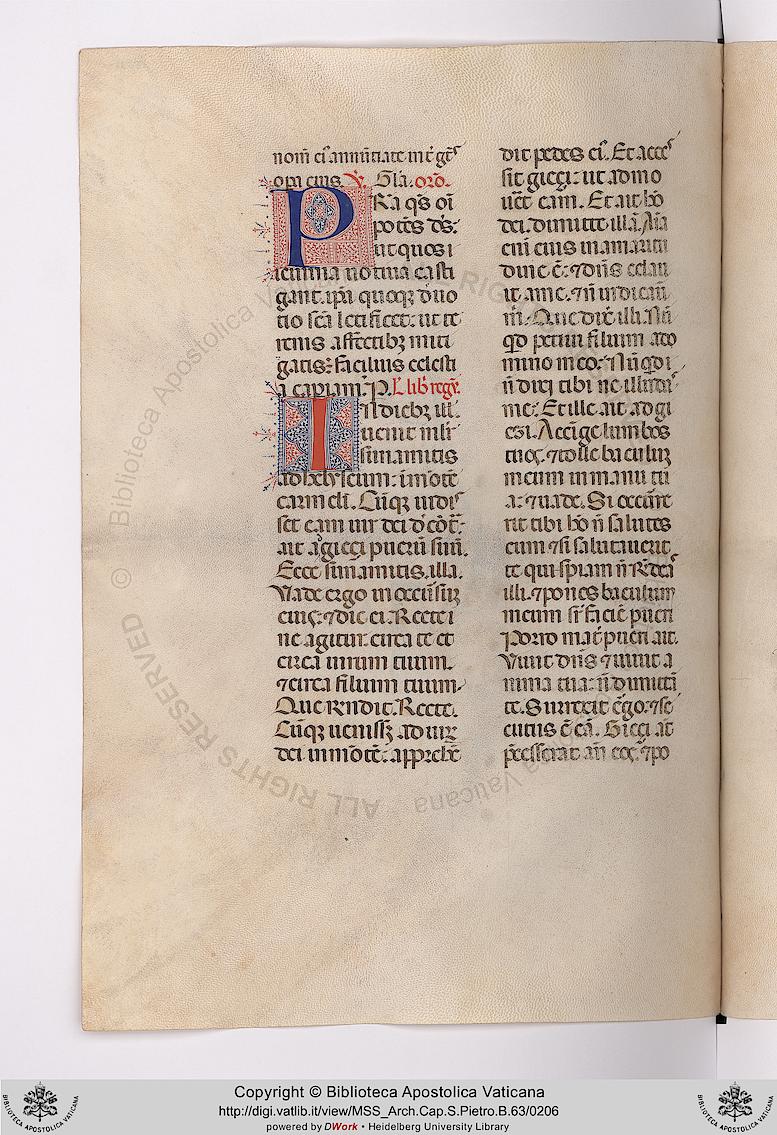 nom̄ ei᷒ annūtiate int̄ gētͤs
opa eius. ℣. Gła. orō.
PRa qs̄ oī
potēs ds̄.
ut quos i
ieiunia uotiua casti
gant. ip̄a quoqꝫ deuo
tio sc̄a letificet. ut te
renis affectibꝫ miti
gatis. facilius celesti
a capiam᷒. P. L. lib regꝝ.
IN diebꝫ ill̄.
uenit mlr̄
sunamitis
ad helyseum. ī mōtē
carmeli. Cūqꝫ uidis
set eam uir dei d̓ cōtͣ.
ait ad gieçi pueꝝ suū.
Ecce sunamitis. illa.
Vade ergo in occursū
eius. ⁊ dic ei. Recte i
ne agitur circa te et
circa uirum tuum.
⁊ circa filium tuum.
Que respondit. Recte.
Cūqꝫ uenissꝫ ad uiꝝ
dei in mōtē. appreħē
dit pedes ei᷒. Et acces
sit gieçi. ut admo
uēt eam. Et ait hō
dei. dimitte illā. Aīa
enī eius in amaritu
dine ē. ⁊ dn̄s celau
it a me. ⁊ nō indicauit
m̄. Que dix̄ illi. Nū
qd̓ petiui filium a do
mino meo. Nūqd̓ i
n̄ dixi tibi ne illudas
me. Et ille ait ad gi
eçi. Accinge lumbos
tuos. ⁊ tolle baculuꝫ
meum in manu tu
a. ⁊ uade. Si occurre
rit tibi hō n̄ salutes
eum ⁊ si salutauerit
te quispiam n̄ rn̄deas
illi. ⁊ pones baculum
meum sr̄ faciē pueri
Porro mat̄ pueri ait.
Viuit dn̄s ⁊ uiuit a
nima tua. n̄ dimittā
te. Surrexit ergo. ⁊ se
cutus ē eā. Gieçi aut̄
p̄cesserat an̄ eos. ⁊ po
© Biblioteca Apostolica Vaticana
ALL RIGHTS RESERVED
Copyright © Biblioteca Apostolica Vaticana
http://digi.vatlib.it/view/MSS_Arch.Cap.S.Pietro.B.63/0206
powered by DWork • Heidelberg University Library